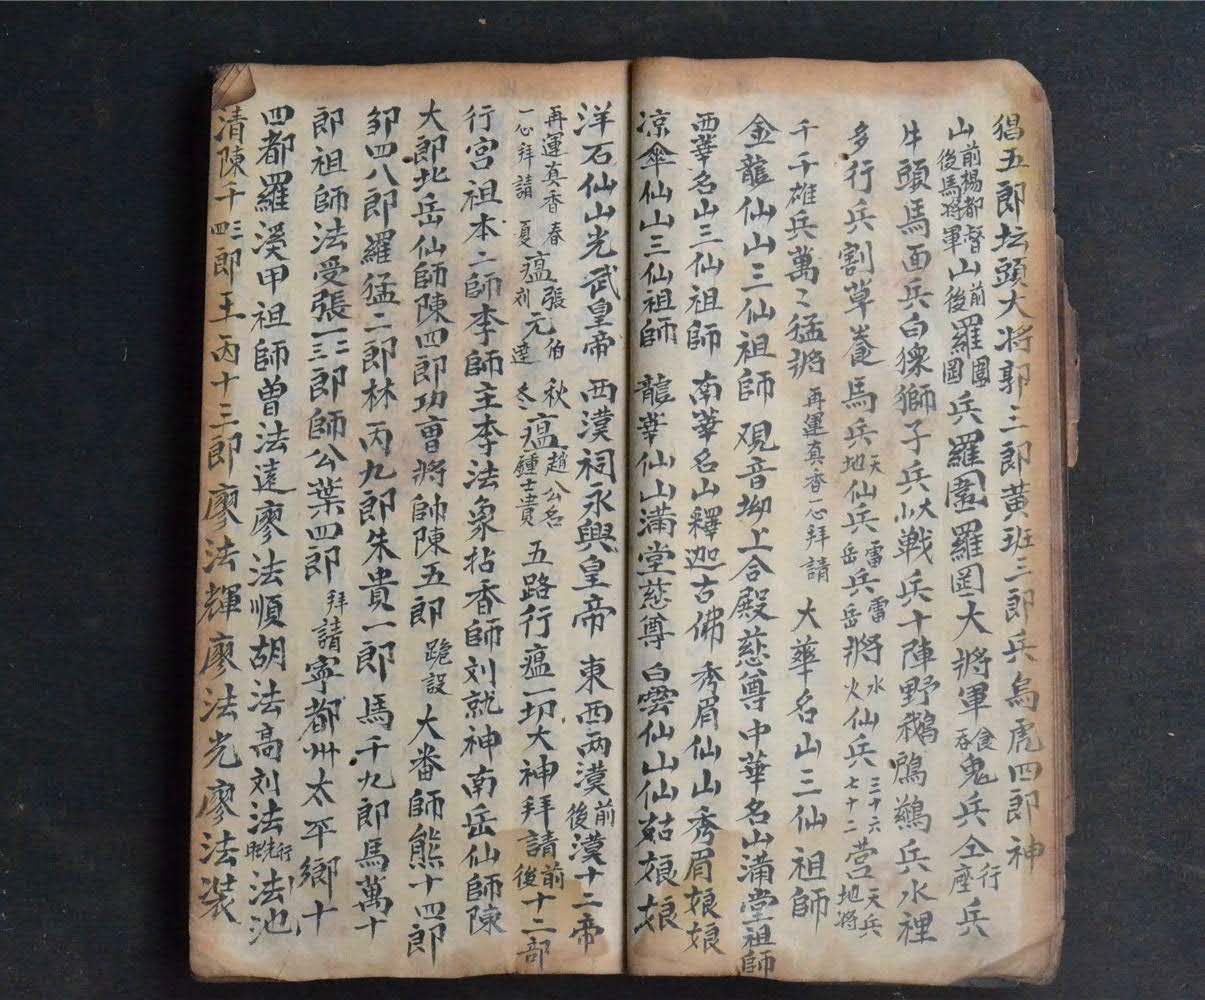 猖五郎坛頭大将郭三郎黄班三郎兵烏虎四郎神
山前楊都督後馬將軍山前後羅團岡兵羅園羅岡大將軍食吞鬼兵行座兵
牛頭馬面兵白猿獅子兵大小戦兵十陣野鵝鴟鷀兵水裡
多行兵割草養馬兵天地仙兵雷岳兵雷岳將水火仙兵三十六七十二营天兵地將
千千雄兵萬〻猛將 再運真香一心拜請 大華名山三仙祖師
金龍仙山三仙祖師 观音坳上合殿慈尊中華名山满堂祖師
西華名山三仙祖師 南華名山釋迦古佛 秀眉仙山秀眉娘娘
凉傘仙山三仙祖師 龍華仙山满堂慈尊 白雲仙山仙姑娘娘
洋石仙山光武皇帝 西漢祠永興皇帝 東西两漢前後漢十二帝
再運真香一心拜請 春夏瘟張刘元伯達 秋冬瘟趙公名鍾士貴 五路行瘟一切大神拜請前後十二部
行宫祖本二師李師主李法象拈香師刘就神南岳仙師陳
大郎北岳仙師陳四郎功曹將帥陳五郎 跪設 大番師熊十四郎
邹四八郎羅猛二郎林丙九郎朱貴一郎馬千九郎馬萬十
郎祖師法受張三郎師公葉四郎 拜請 寧都州太平鄉十
四都羅溪甲祖師曾法遠廖法順胡法高刘法行法池
清陳千四三郎王丙十三郎廖法輝廖法光廖法装